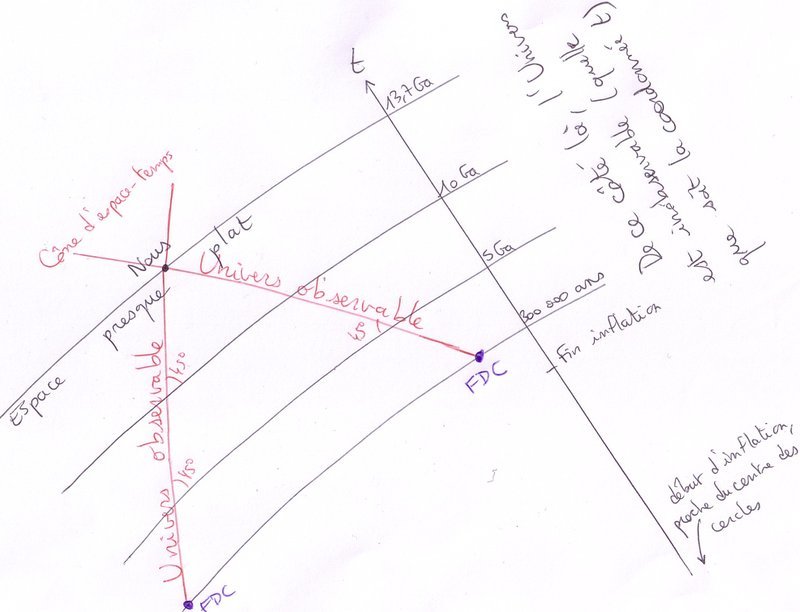 t
13,7 Ga
10 Ga
5 Ga
300 000 ans
Fin inflation
début d'inflation,
proche du centre des
cercles
De ce côté là, l'Univers
est inobservable (quelle
que soit la coordonnée t)
Cône d'espace-temps
Nous
Espace presque plat
Univers observable
45
FDC
Univers observable
45°
45°
FDC